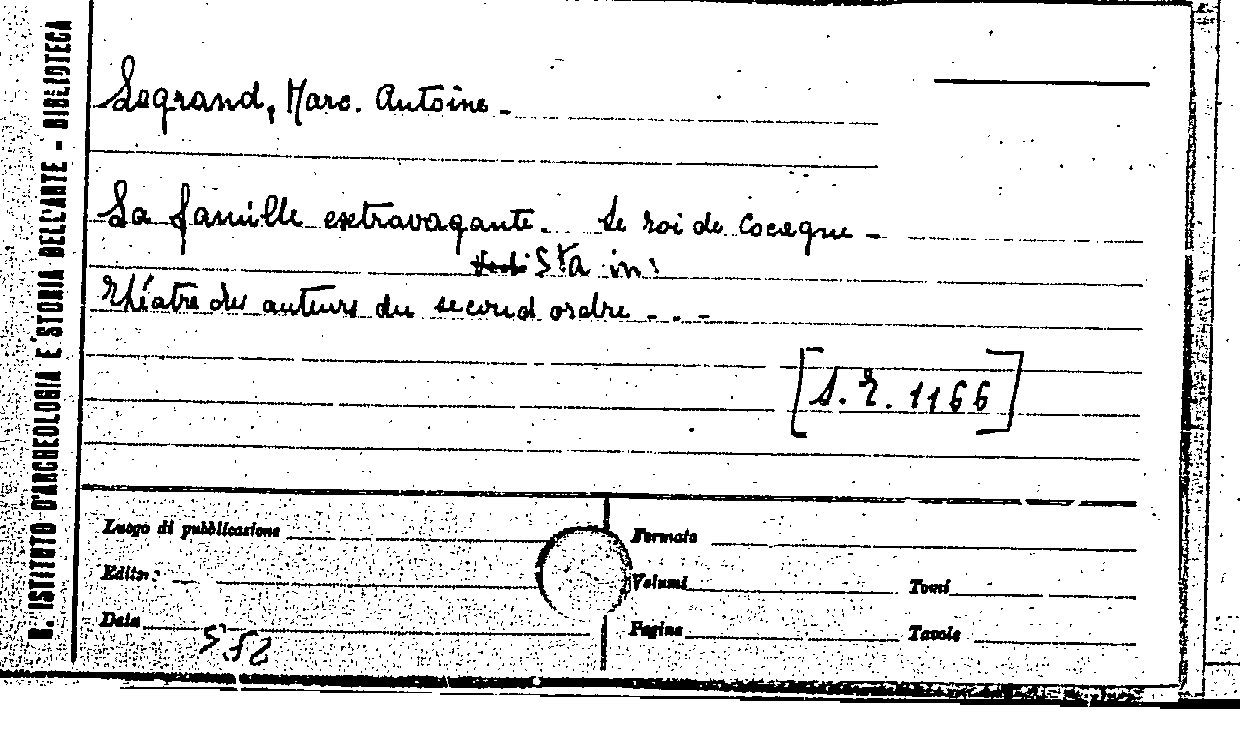 R. ISTITUTO D'ARCHEOLOGIA E STORIA DELL'ARTE - BIBLIOTECA
Legrand, Marc. Antoine.
La famille extravagante. Le roi de Cocagne.
Sta in:
Théatre des auteurs du second ordre . . .
[S. R. 1166]
Luogo di pubblicazione
Formato
Editore
Volumi
Tomi
Data
Pagine
Tavole